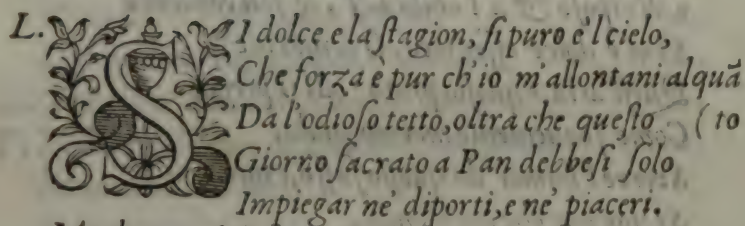 L. SI dolce e la ſtagion, ſi puro e'l cielo,
Che forza è pur ch'io m'allontani alquã
Da l'odioſo tetto, oltra che queſto (to
Giorno ſacrato a Pan debbeſi ſolo
Impiegar ne' diporti, e ne' piaceri.